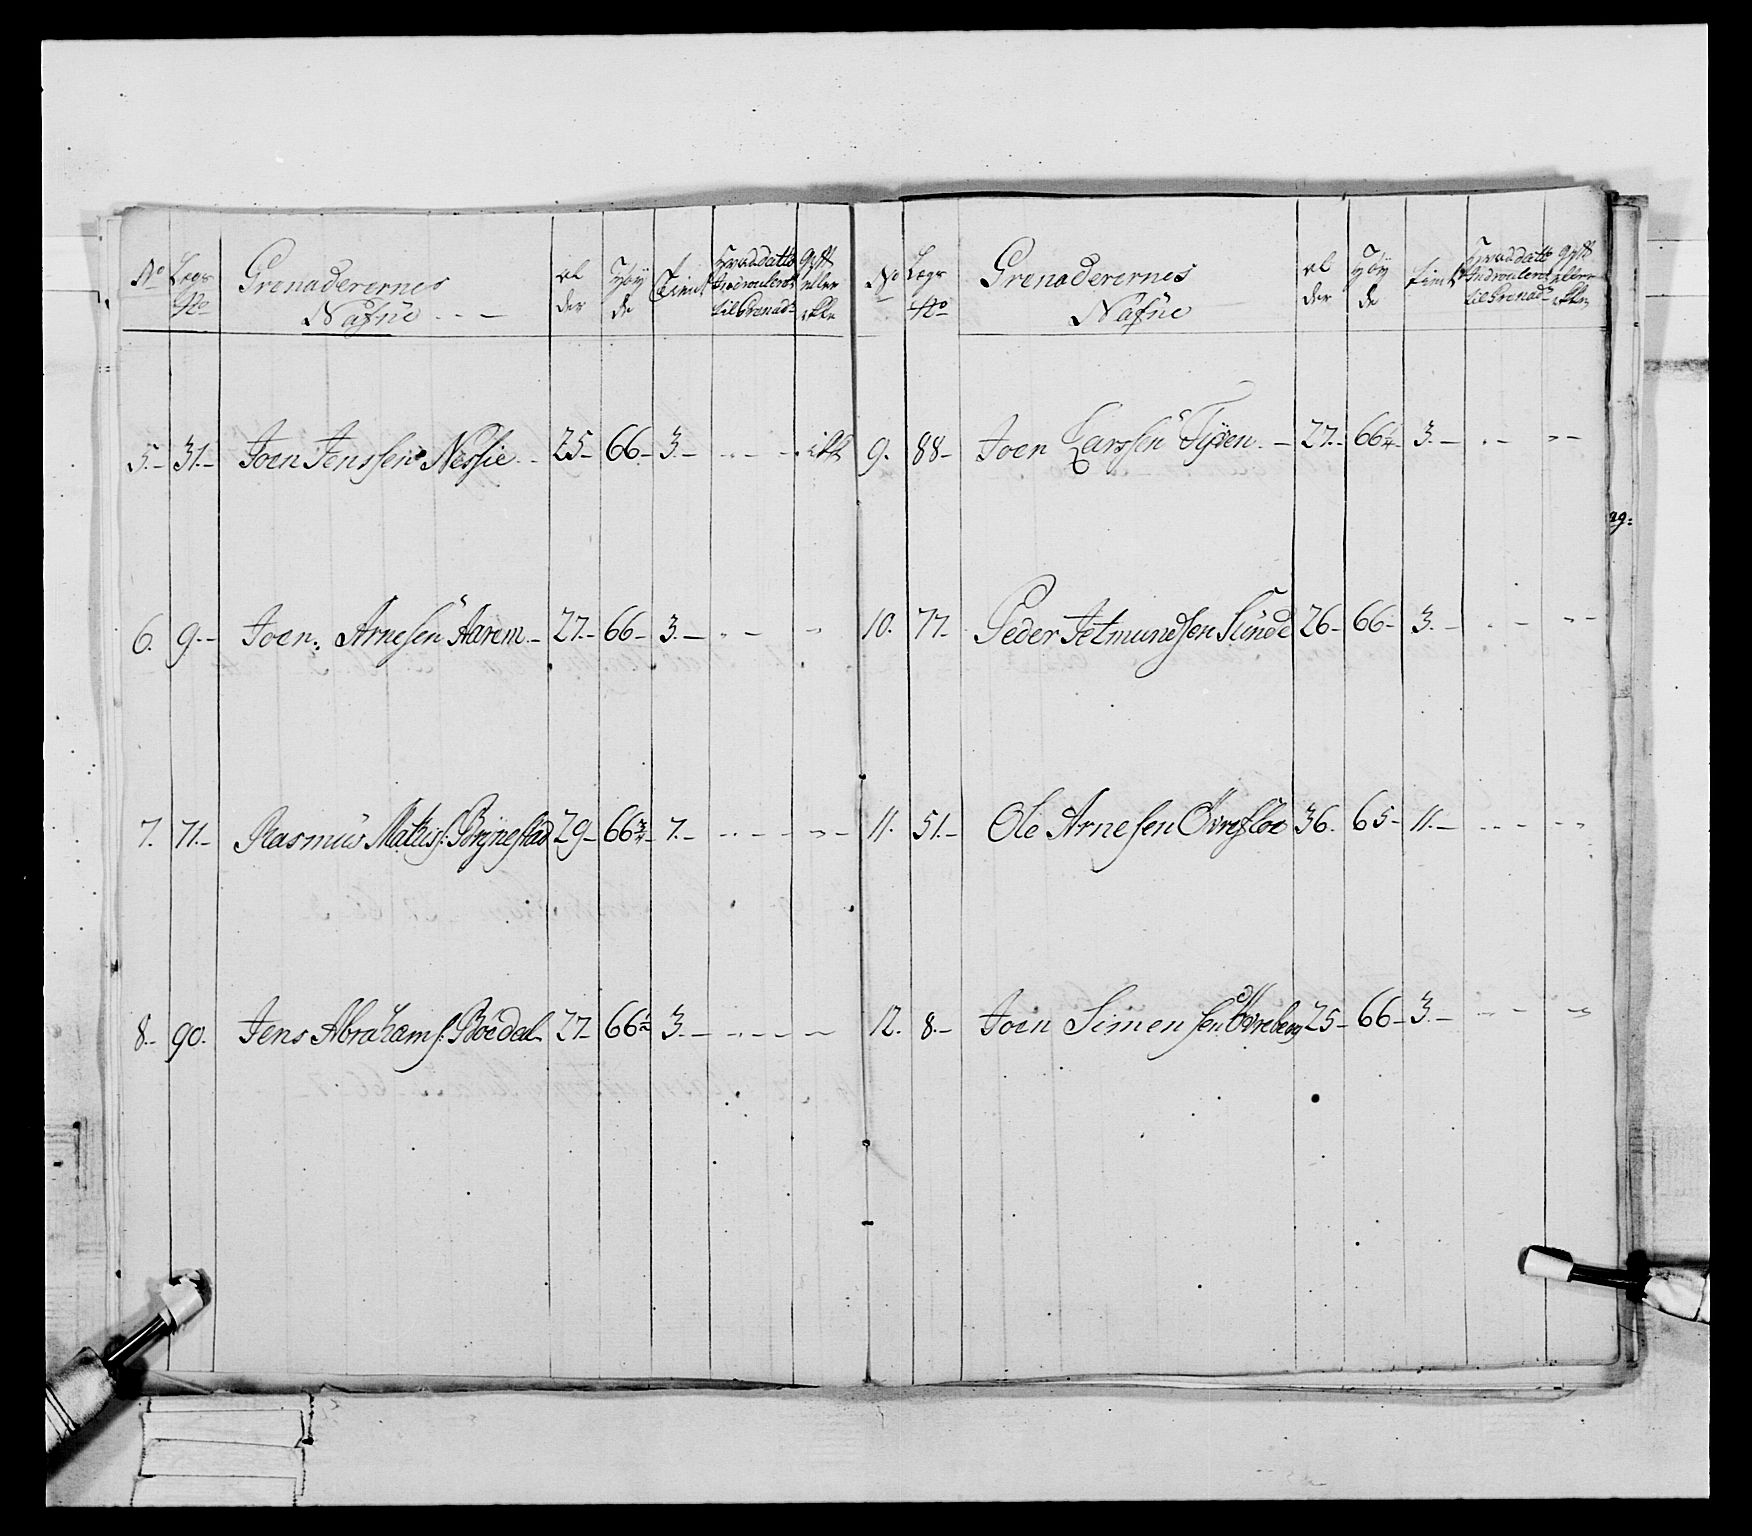 No Legs No Grenaderernes Nafne - - - al der Høÿ de tient Hvad datto Indroulert til Grenadr gyft eller ikke
5.- 31.- Joen Jenssen Nessie.- 25- 66- 3.- - - - ikke
6. 9.- Joen Arnesen Aarem.- 27.- 66- 3.- - - -
7. 71.- Rasmus Matias: Brÿnestad 29- 66 3/4- 7.- - - - -
8.- 90. Jens Abrahams: Bøedal- 27- 66 1/2 3.- - - - -
No Legs No Grenaderernes Nafne al der Høÿ de tient Hvad datto Indroulert til Grenadr gyft eller ikke
9. 88- Joen Larssen - 27.- 66 1/4- 3.- - - - -
10. 77. Peder Jetmundsen 26- 66- 3.- - - - -
11. 51.- Ole Arnesen Øvrefloe 36. 65- 11.- - - - -
12. 8.- Joen Simensen Øvreberg 25- 66- 3.- - - -
ag: